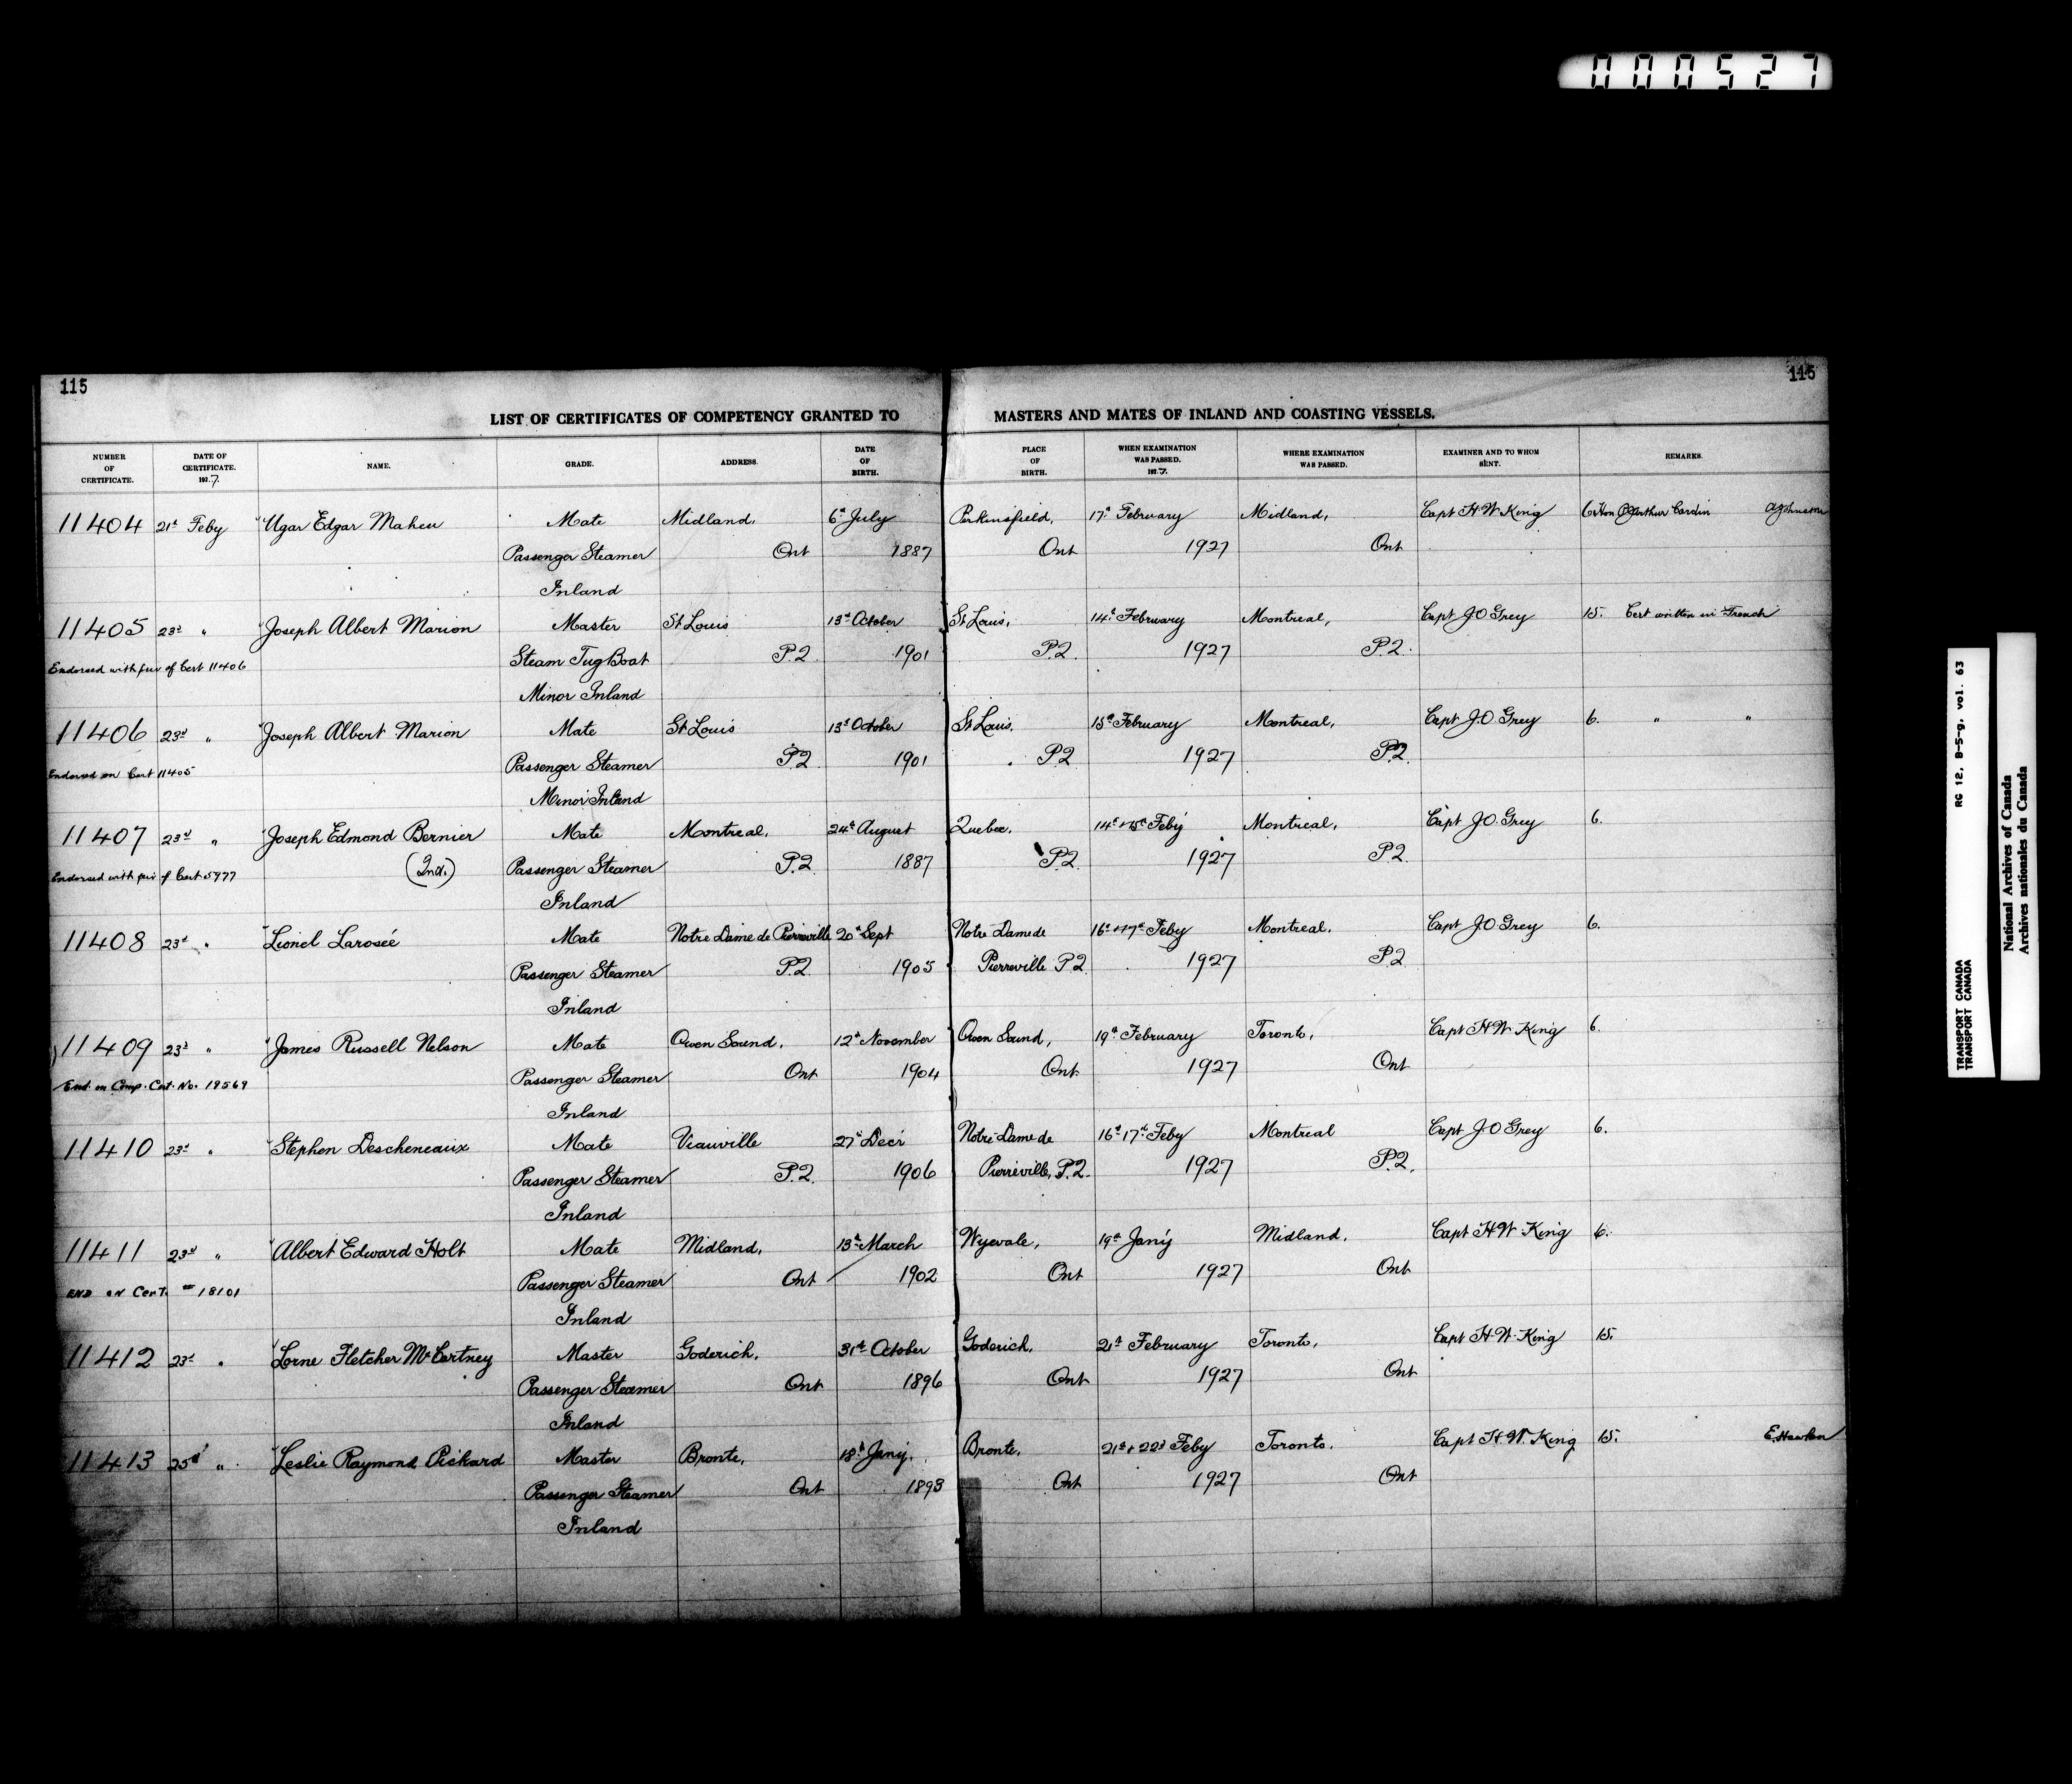 000527
115
115
LIST OF CERTIFICATES OF COMPETENCY GRANTED TO MASTERS AND MATES OF INLAND AND COASTING VESSELS.
NUMBER OF CERTIFICATE. DATE OF CERTIFICATE. 1927. NAME. GRADE. ADDRESS. DATE OF BIRTH. PLACE OF BIRTH. WHEN EXAMINATION WAS PASSED. 1927. WHERE EXAMINATION WAS PASSED. EXAMINER AND TO WHOM SENT. REMARKS.
11404 21st Feby Ugar Edgar Maheu Mate Midland, 6th July Perkinsfield, 17th February Midland, Capt H.W. King 6 Hon Arthur Cardin A Johnston
Passenger Steamer Ont 1887 Ont 1927 Ont
Inland
11405 23rd " Joseph Albert Marion Master St Louis 13th October St Louis, 14th February Montreal, Capt J.O Grey 15. Cert written in French
Endorsed with priv of Cert 11406 Steam Tug Boat P.Q. 1901 P.Q. 1927 P.Q.
Minor Inland
11406 23rd " Joseph Albert Marion Mate St Louis 13th October St Louis, 15th February Montreal, Capt J.O. Grey 6. " "
Endorsed on Cert 11405 Passenger Steamer P.Q 1901 P.Q 1927 P.Q.
Minor Inland
11407 23rd " Joseph Edmond Bernier Mate Montreal, 24th August Quebec, 14th & 15th Feby Montreal, Capt J.O. Grey 6.
Endorsed with priv of Cert 5977 (Ind.) Passenger Steamer P.Q. 1887 P.Q. 1927 P.Q.
Inland
11408 23rd " Lionel Larosée Mate Notre Dame de Pierreville 20th Sept Notre Dame de 16th & 17th Feby Montreal, Capt J.O. Grey 6.
Passenger Steamer P.Q. 1905 Pierreville P.Q. 1927 P.Q
Inland
11409 23rd " James Russell Nelson Mate Owen Sound, 12th November Owen Sound, 19th February Toronto, Capt H.W. King 6.
End. on Comp. Cert. No. 19569 Passenger Steamer Ont 1904 Ont 1927 Ont
Inland
11410 23rd " Stephen Descheneaux Mate Viauville 27th Decr Notre Dame de 16th 17th Feby Montreal Capt J.O Grey 6.
Passenger Steamer P.Q. 1906 Pierreville, P.Q. 1927 P.Q.
Inland
11411 23rd " Albert Edward Holt Mate Midland, 13th March Wyevale, 19th Jany Midland, Capt H.W. King 6.
END ON Cert. 18101 Passenger Steamer Ont 1902 Ont 1927 Ont
Inland
11412 23rd " Lorne Fletcher McCartney Master Goderich, 31st October Goderich, 21st February Toronto, Capt H.W. King 15.
Passenger Steamer Ont 1896 Ont 1927 Ont
Inland
11413 25th " Leslie Raymond Pickard Master Bronte, 18th Jany. Bronte, 21st & 22nd Feby Toronto, Capt H.W. King 15. E Hawken
Passenger Steamer Ont 1893 Ont 1927 Ont
Inland
TRANSPORT CANADA RG 12, B-5-g, vol. 63
TRANSPORT CANADA
National Archives of Canada
Archives nationales du Canada